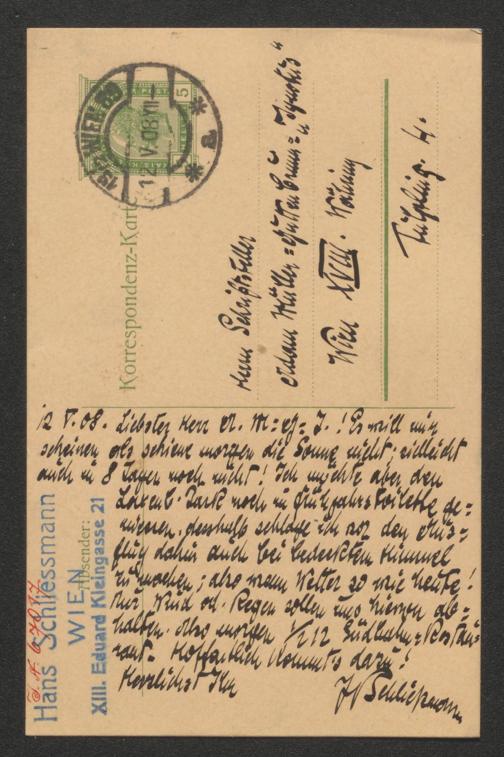 Korrespondenz-Karte
19/1 WIEN 89
12.V.08.VII-
* a *
5
Herrn Schriftsteller
Adam Müller-Guttenbrunn u "Ignotus"
Wien XVIII. Währing
4.
12 V. 08. Liebster Herr A. M=G= J.! Es will mir
scheinen als schiene morgen die Sonne nicht; vielleicht
auch in 8 Tagen noch nicht! Ich möchte aber den
Laxenb. Park noch in Frühjahrstoilette ge=
niessen, desshalb schlage ich vor den Aus=
flug dahin auch bei bedecktem Himmel
zu machen; also wenn Wetter so wie heute!
Nur Wind od. Regen sollen uns hievon ab=
halten. Also morgen 1/2 12 Südbahn=Restau=
rant. Hoffentlich kommt's dazu!
Herzlichst Ihr
HSchliessmann
Absender:
Hans Schliessmann
WIEN
XIII. Eduard Kleingasse 21